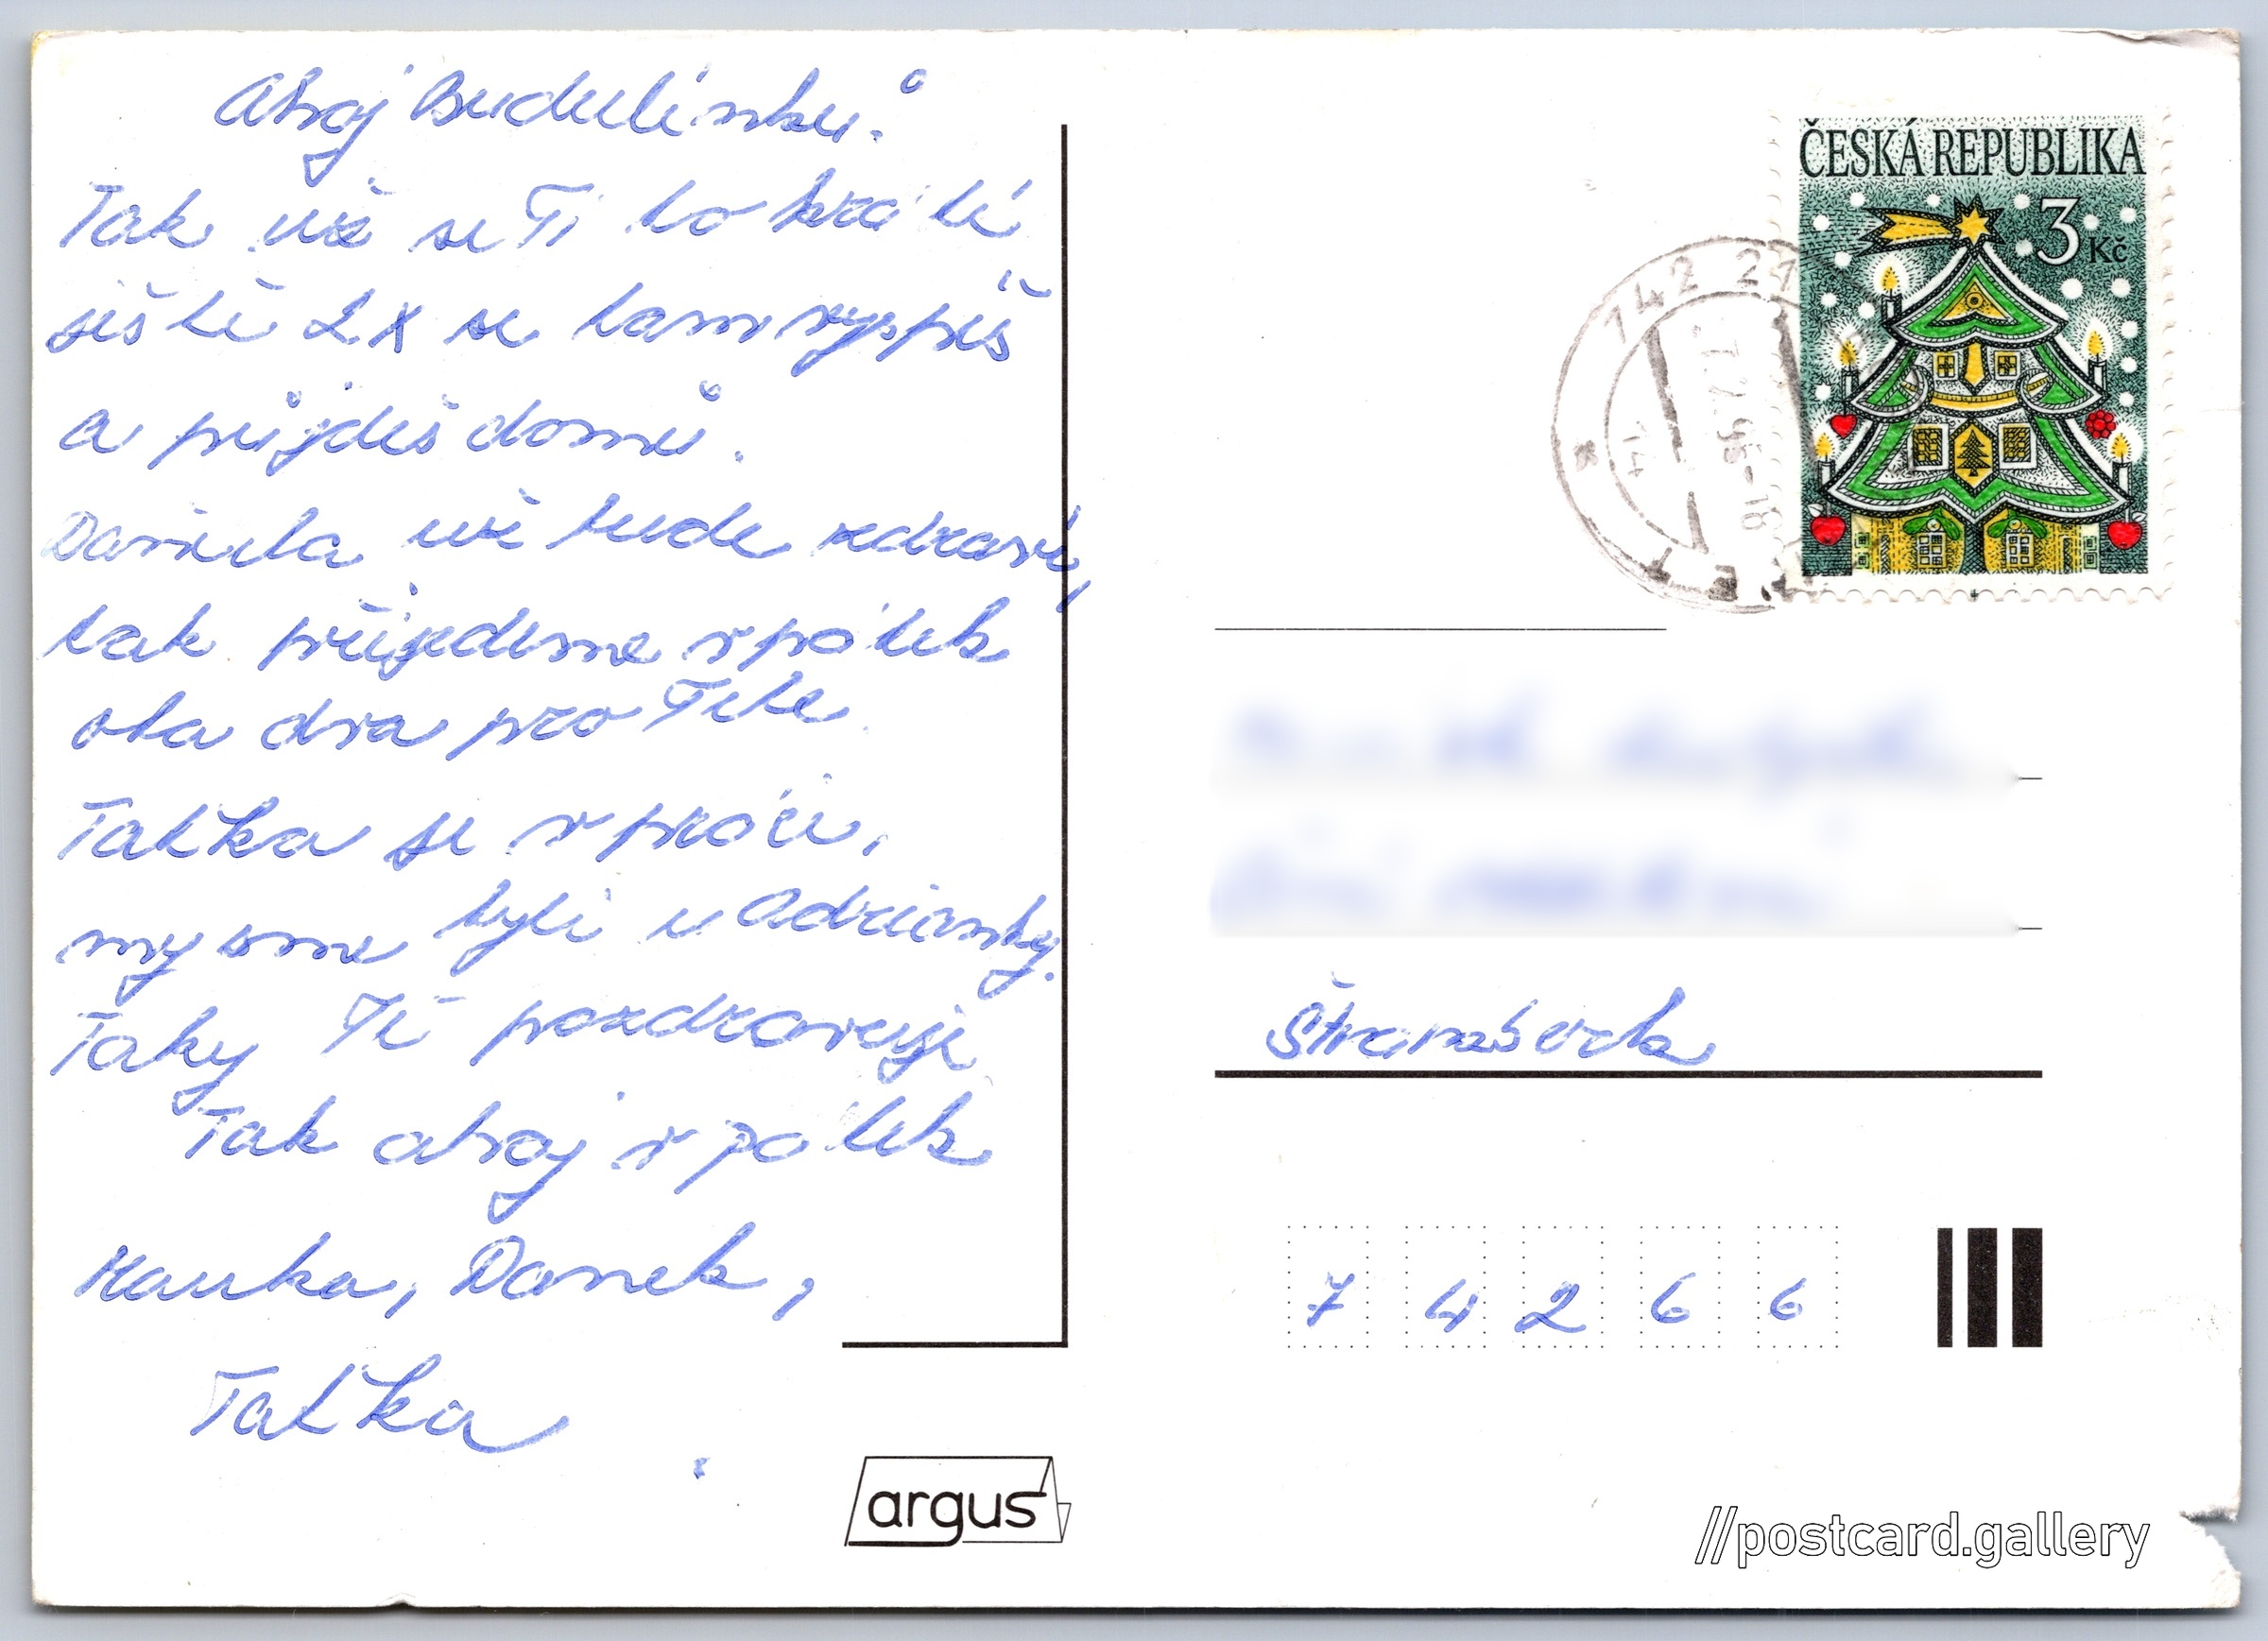 Ahoj Budulínku.
Tak už se Ti to krátí
ještě 2x se tam vyspíš
a přijdeš domů.
Daniela už bude zdravá,
tak přijedeme v pátek
oba dva pro Tebe.
Taťka je v práci,
my sme byli u Adrianky.
Taky Tě pozdravuje
Tak ahoj v pátek
Mamka, Danek,
Taťka
argus
ČESKÁ REPUBLIKA
3 Kč
742 21
14
Štramberk
7 4 2 6 6
//postcard.gallery